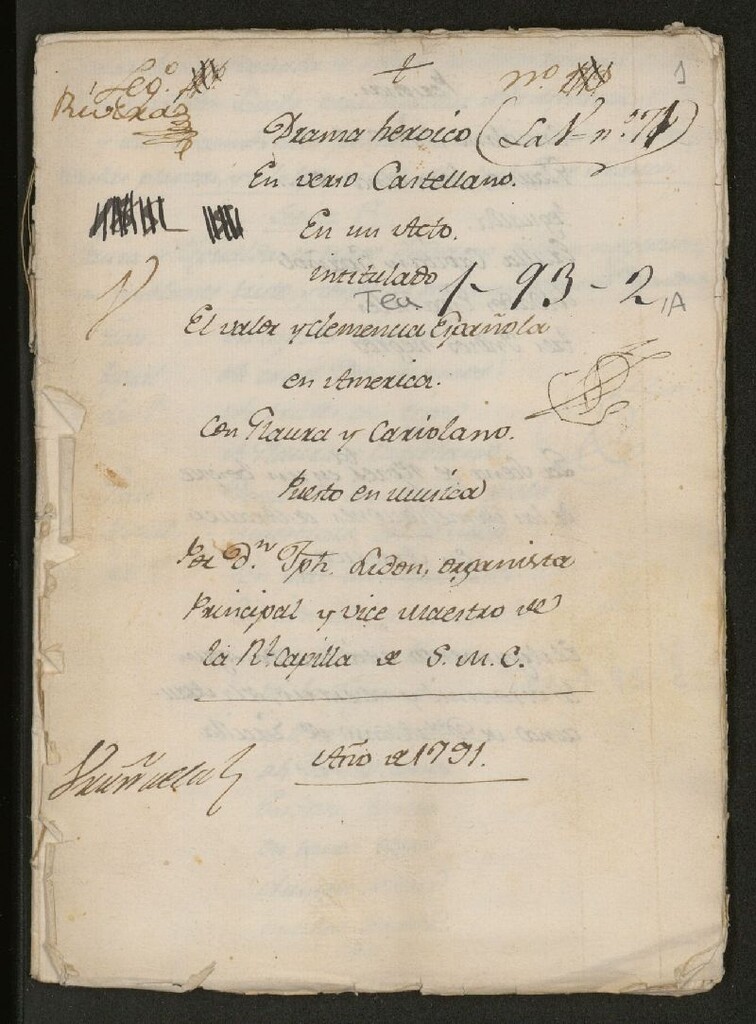 Leg.º
n.º
1
Riveras
Drama heroico (La V n.º 71)
En verso Castellano.
En un Acto.
intitulado
Tea 1-93-2, A
El valor y clemencia Española
en America.
Con Glaura y Cariolano.
Puesto en musica
Por D.n Jph. Lidon, organista
Principal y vice Maestro de
la Rl. Capilla de S. M. C.
Año de 1791.